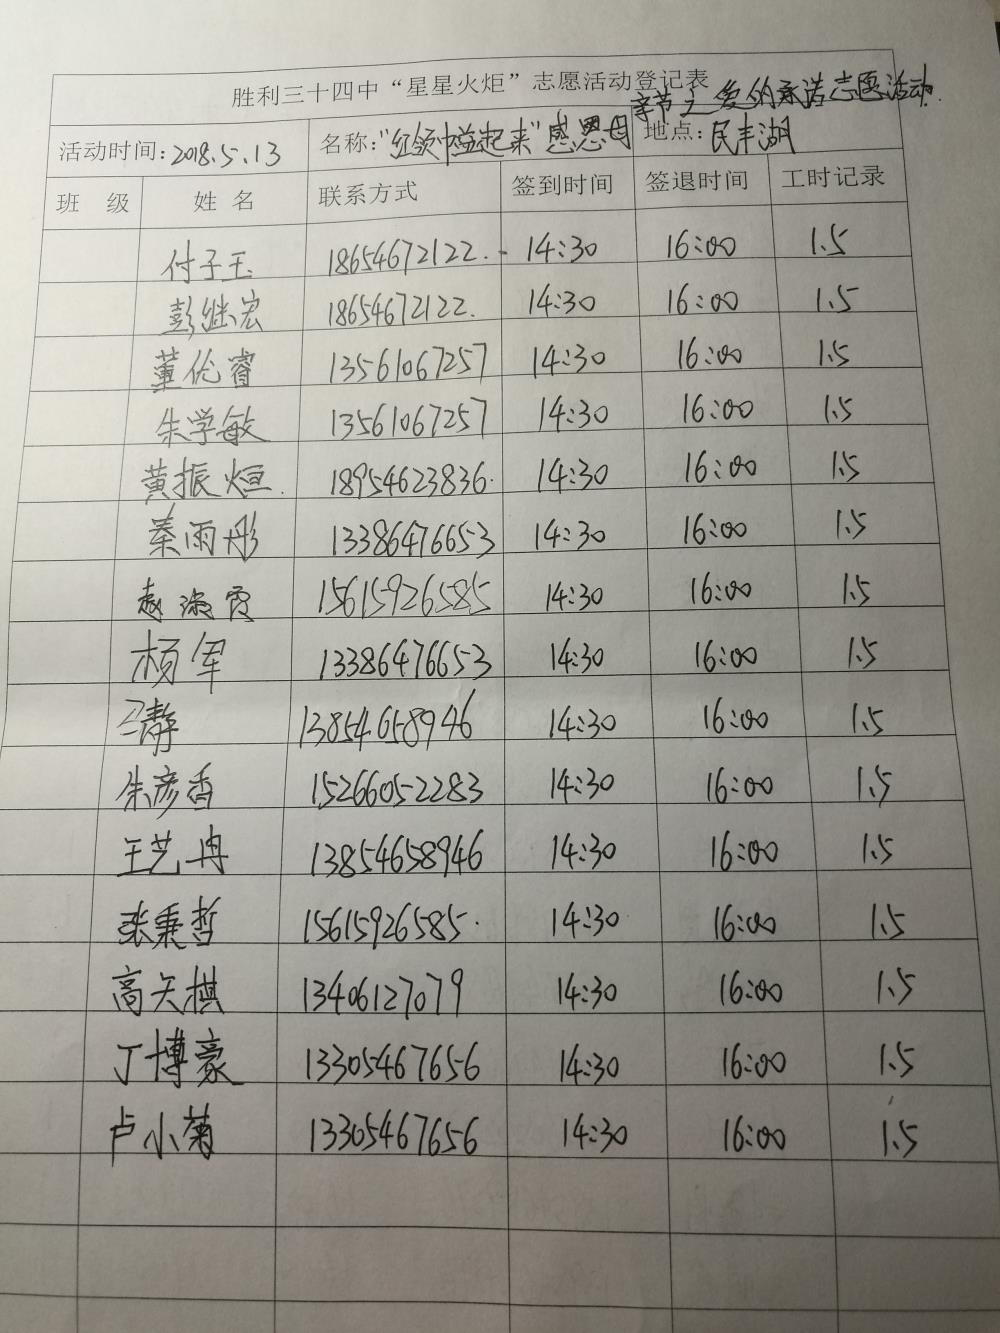 胜利三十四中“星星火炬”志愿活动登记表
活动时间:2018.5.13 名称:“红领巾学起来”感恩母亲节之爱的承诺志愿活动 地点:民丰湖
班 级 姓 名 联系方式 签到时间 签退时间 工时记录
付子玉 18654672122. 14:30 16:00 1.5
彭继宏 18654672122. 14:30 16:00 1.5
董伦睿 13561067257 14:30 16:00 1.5
朱学敏 13561067257 14:30 16:00 1.5
黄振烜. 18954623836. 14:30 16:00 1.5
秦雨彤 13386476653 14:30 16:00 1.5
赵淑霞 15615926585 14:30 16:00 1.5
杨军 13386476653 14:30 16:00 1.5
静 13854658946 14:30 16:00 1.5
朱彦香 15266052283 14:30 16:00 1.5
王艺冉 13854658946 14:30 16:00 1.5
张秉哲 15615926585. 14:30 16:00 1.5
高天棋 13406127079 14:30 16:00 1.5
丁博豪 13305467656 14:30 16:00 1.5
卢小菊 13305467656 14:30 16:00 1.5